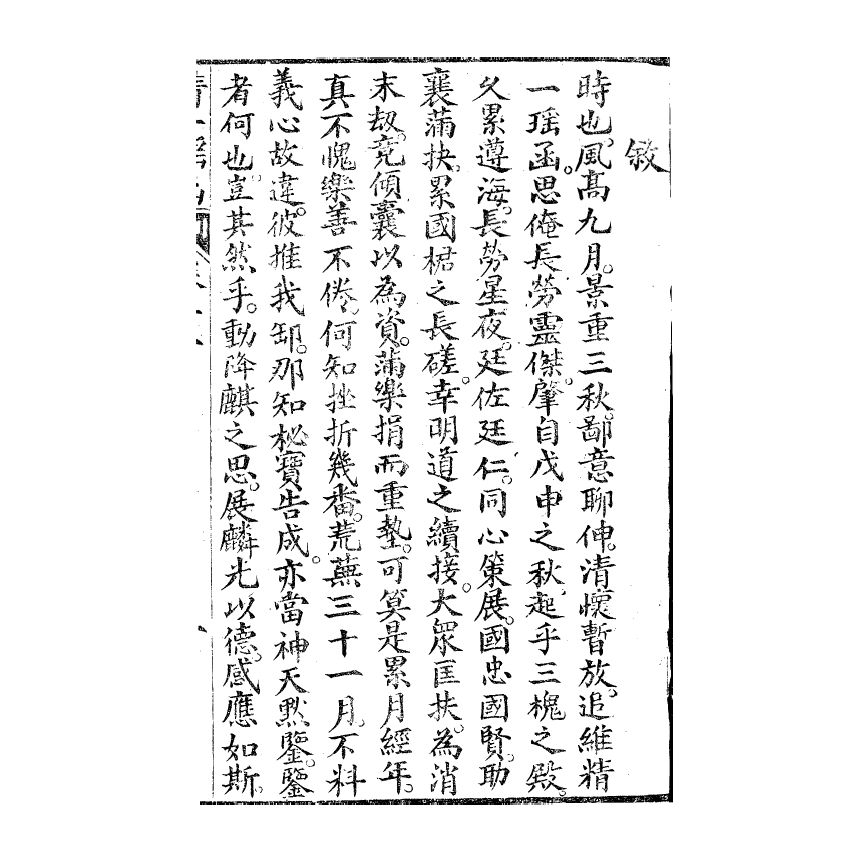 敘
時也。風高九月。景重三秋。鄙意聊伸。清懷暫放。追維精
一瑶函。思俺長勞靈傑。肇自戊申之秋。起乎三槐之殿。
久累遵海。長勞星夜。廷佐廷仁。同心策展。國忠國賢。助
襄蒲抉。累國楷之長磋。幸明道之續接。大眾匡扶。為消
末刼。竟傾囊以為資。蒲樂捐而重墊。可算是累月經年。
真不愧樂善不倦。何知挫折幾番。荒蕪三十一月。不料
義心故違。彼推我卸。那知秘寶告成。亦當神天默鑒。鑒
者何也。豈其然乎。動降麒之思。展麟光以德。感應如斯。